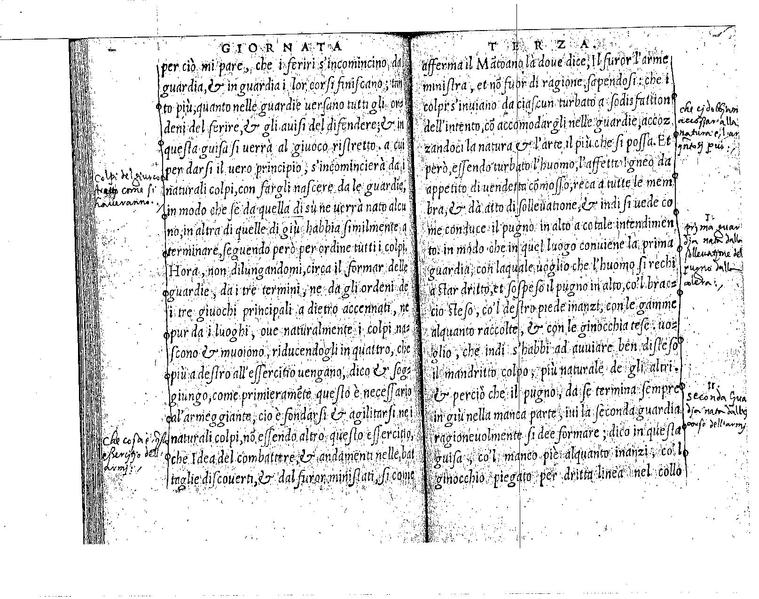 GIORNATA
per ciò mi pare, che i feriri s'incomincino da
guardia, & in guardia i lor corsi finiscano; tan
to più, quanto nelle guardie uersano tutti gli or
deni del ferire, & gli auisi del difendere; & in
questa guisa si uerrà al giuoco ristretto, a cui
per darsi il uero principio, s'incomincierà da i
naturali colpi, con fargli nascere da le guardie,
in modo che se da quella di sù ne uerrà nato alcu
no, in altra di quelle di giù habbia similmente a
terminare, seguendo però per ordine tutti i colpi.
Hora, non dilungandomi, circa il formar delle
guardie, da i tre termini, ne da gli ordeni de
i tre giuochi principali a dietro accennati, ne
pur da i luoghi, oue naturalmente i colpi na
scono & muoiono, riducendogli in quattro, che
più a destro all'essercitio uengano, dico & sog-
giungo, come primieramēte questo è necessario
al'armeggiante, cio è fondarsi & agilitarsi nei
naturali colpi, nō essendo altro questo essercitio,
che Idea del combattere, & andamenti nelle bat
taglie discouerti, & dal furor ministrati, si come
Colpi del giuoco
come si
haueranno.
Che cosa è
essercitio dell'
armi.
TERZA.
afferma il Mātoano là doue dice, Il furor l'arme
ministra, et nō fuor di ragione, sapendosi: che i
colpi s'inuiano da ciascun turbato a sodisfattion
dell'intento, cō accomodargli nelle guardie, accoz
zandoci la natura & l'arte, il più che si possa. Et
però, essendo turbato l'huomo, l'affetto igneo da
appetito di uendetta cōmosso, reca a tutte le mem
bra, & dà atto di solleuatione, & indi si uede co
me conduce il pugno in alto a cotale intendimen
to. in modo che in quel luogo conuiene la prima
guardia, con laquale uoglio che l'huomo si rechi
a star dritto, et sospeso il pugno in alto, co'l brac-
cio steso, co'l destro piede inanzi, con le gamme
alquanto raccolte, & con le ginocchia tese. uo-
glio, che indi s'habbi ad auuiare ben disteso
il mandritto colpo, più naturale de gli altri.
& perciò che il pugno, da se termina sempre
in giù nella manca parte, iui la seconda guardia
ragioneuolmente si dee formare; dico in questa
guisa, co'l manco piè alquanto inanzi, co'l
ginocchio piegato per dritta linea nel collo
che
accozzar alla
natura e l'ar
I.
prima guar
dia nata dalla
solleuatione del
pugno dalla
colera.
II.
seconda Gua
dia nata dal
dell'armi